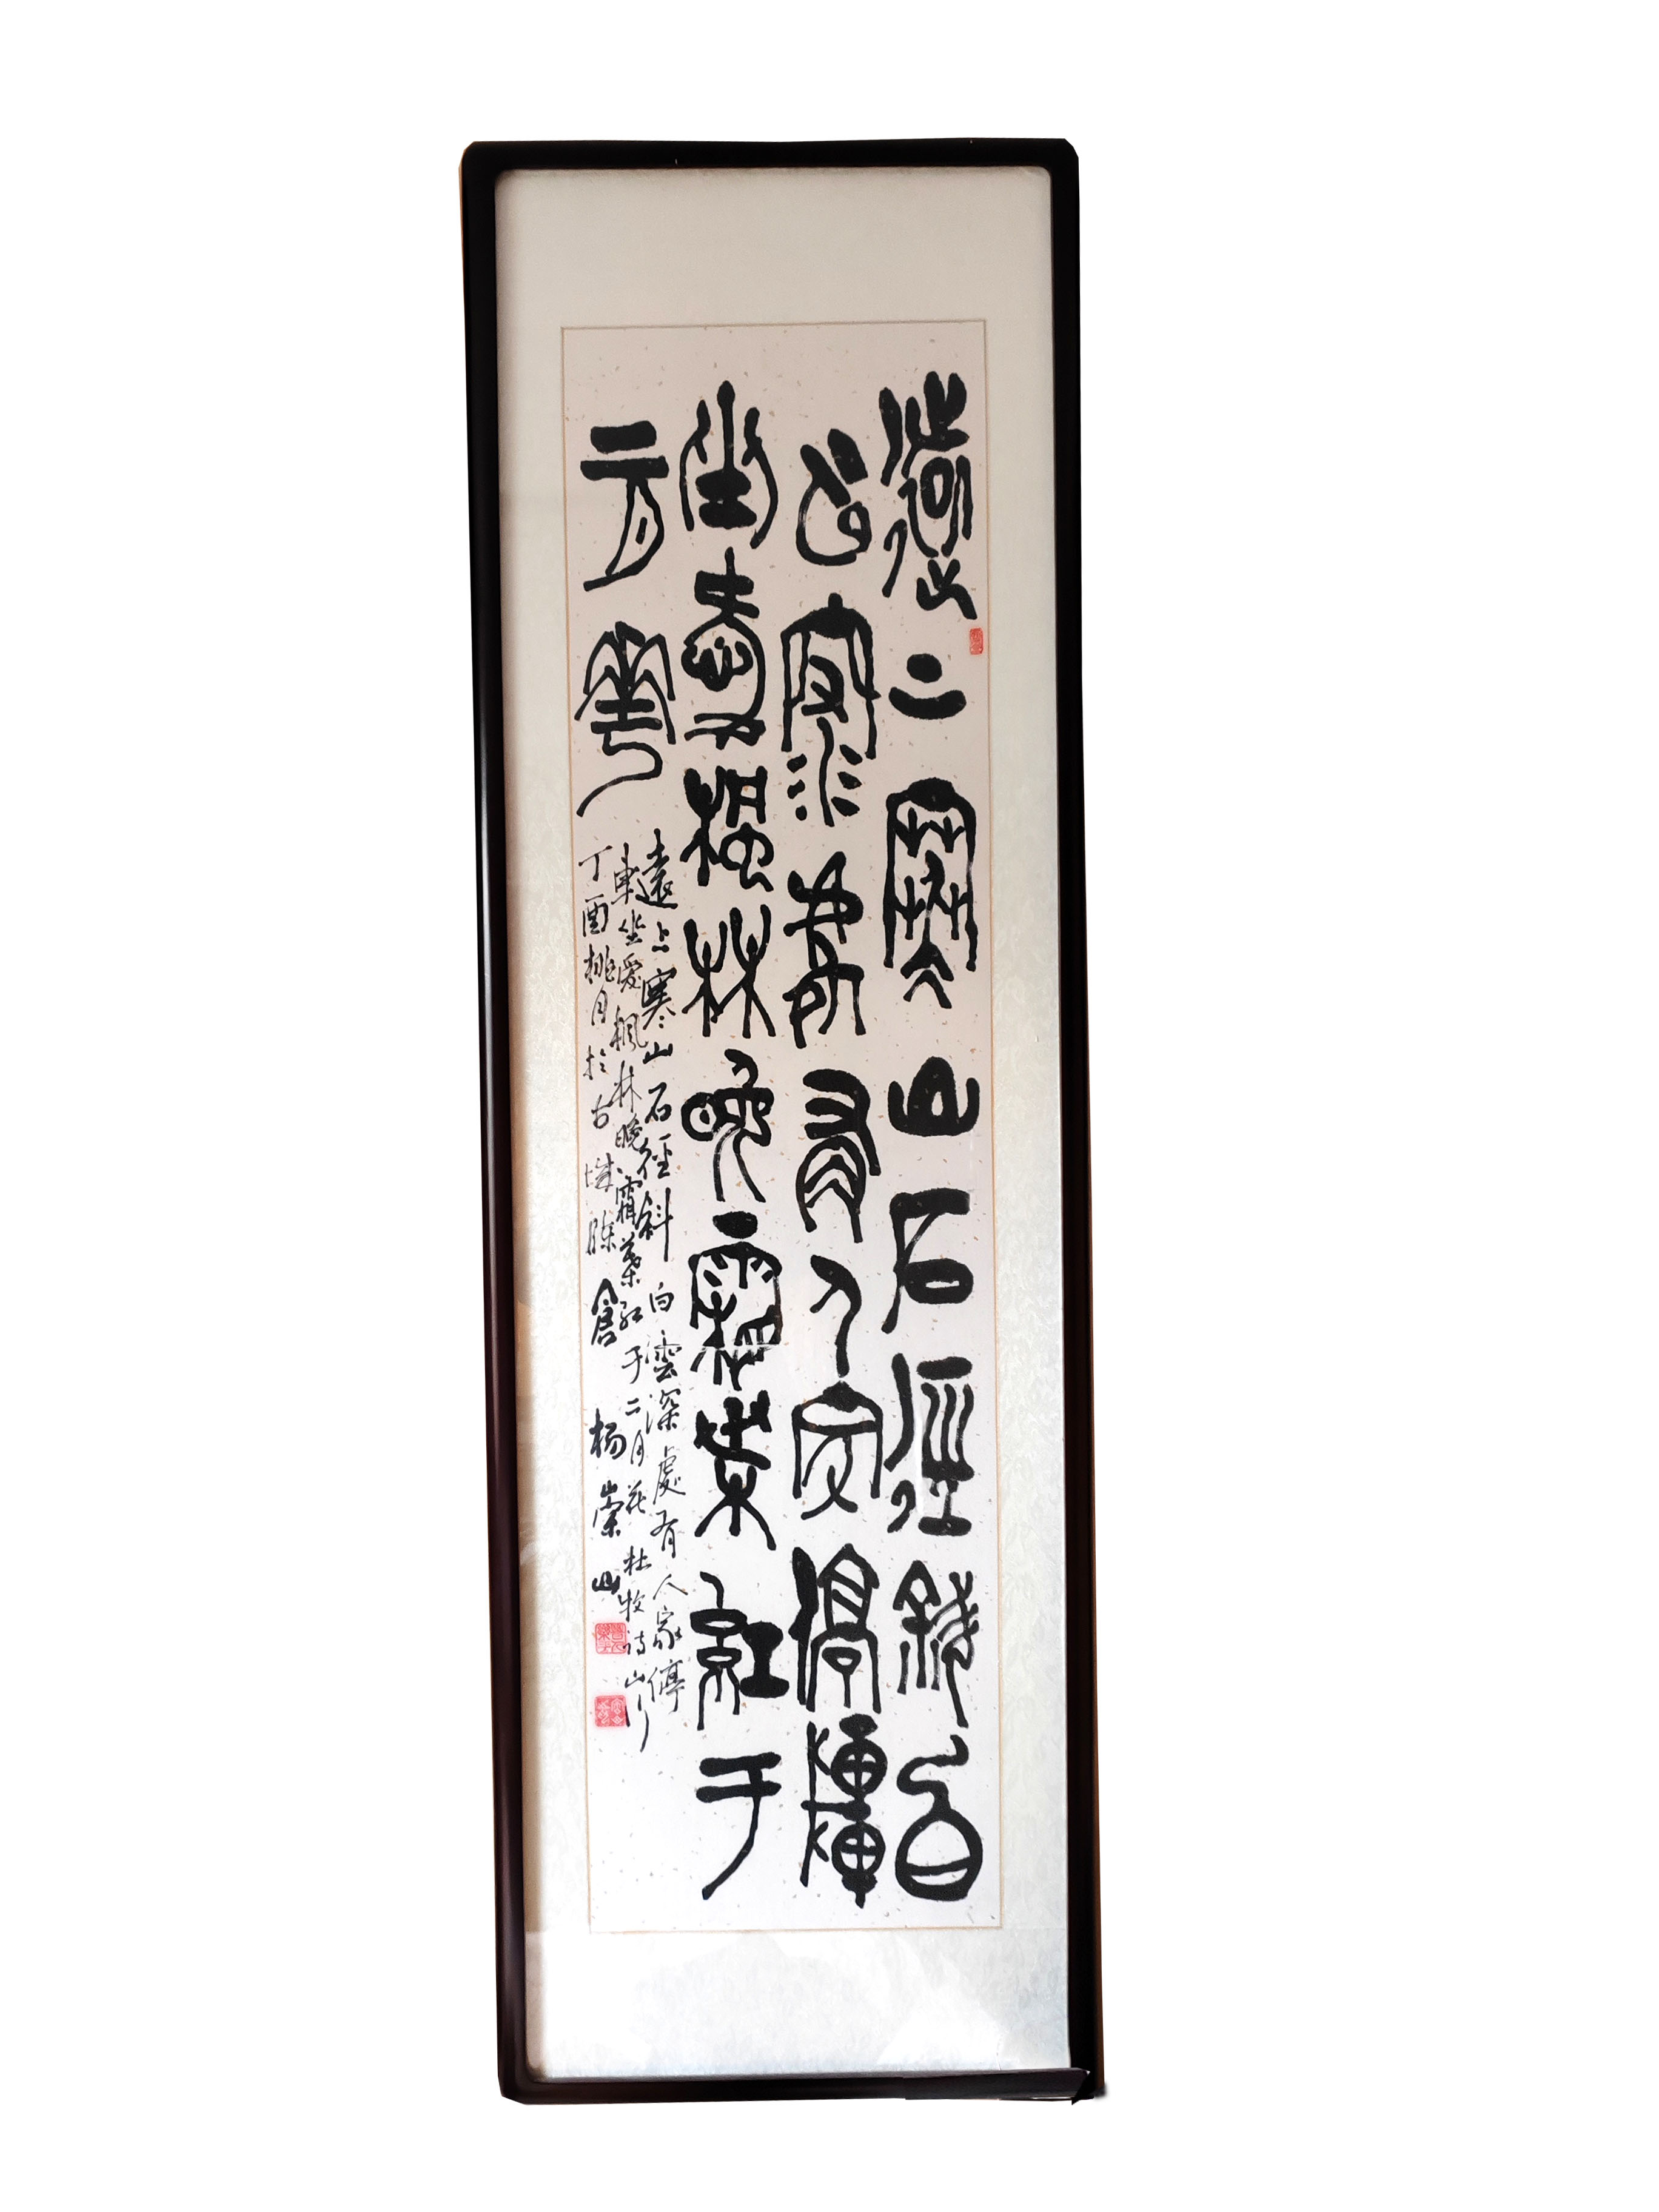 遠上寒山石徑斜白
云深處有人家停車
坐愛楓林晚霜葉紅于
二月華
遠上寒山石徑斜白雲深處有人家停
車坐愛楓林晚霜葉紅于二月花杜牧詩山行
丁酉桃月於古城陳倉杨崇山